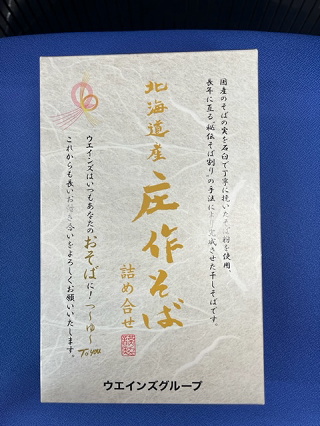 国産のそばの実を石臼で丁寧に挽いたそば粉を使用。
長年に亘る"秘伝そば割り"の手法により完成させた干しそばです。
北海道産
庄作そば
詰め合せ
ウエインズはいつもあなたのおそばに!つ〜ゆ〜
To you
これからも長いお付き合いをよろしくお願いいたします。
ウエインズグループ